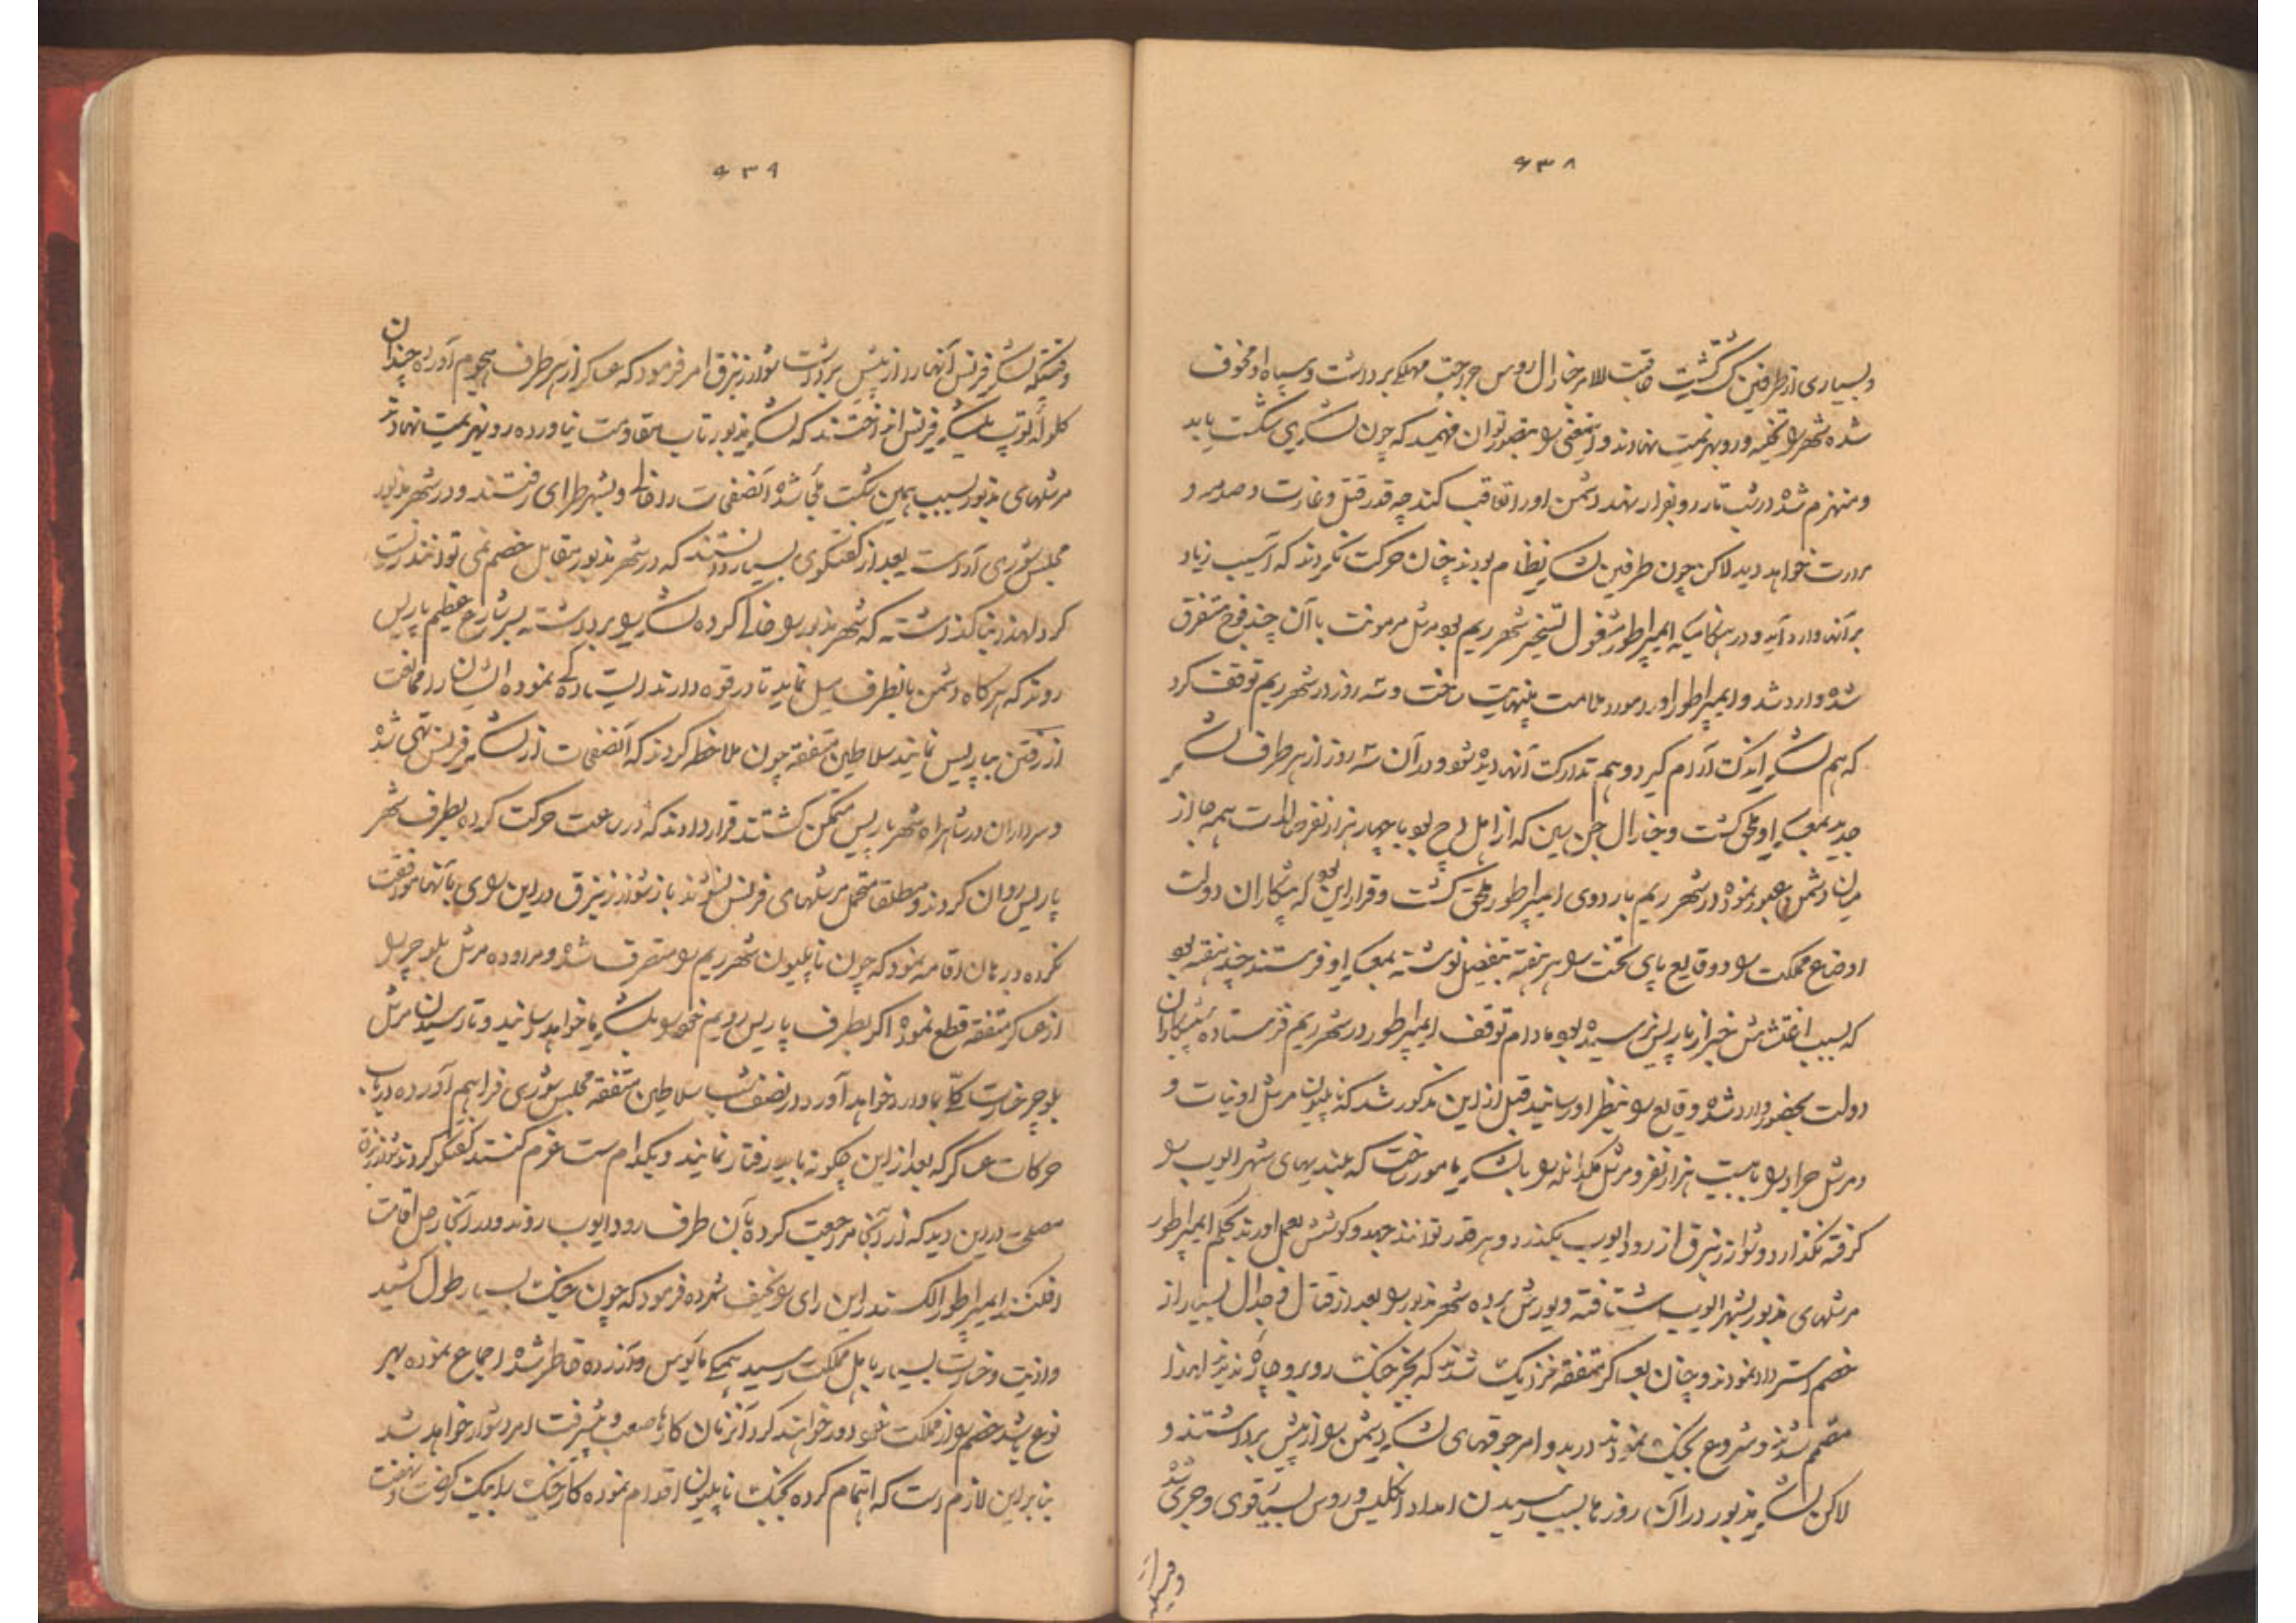 ۶۳۸
و بسیاری از طرفین کشته گشت عاقبت الامر جنرال روس جراحت مهلکی برداشت و سپاه او مخوف
شده شهر را تخلیه و رو بهزیمت نهادند و این معنی را تصور توان فهمید که چون لشگری شکست یابد
و منهزم شده در شب تار رو بفرار نهد دشمن او را تعاقب کند چه قدر قتل و غارت و صدمه و
مرارت خواهد دید لاکن چون طرفین لشگر نظام بودند چنان حرکت نکردند که آسیب زیاد
بر آنها وارد آید و در هنگامیکه ایمپراطور مشغول تسخیر شهر ریم بود مرشل مرمونت با آن چند فوج متفرق
شده وارد شد و ایمپراطور او را مورد ملامت بینهایت ساخت و سه روز در شهر ریم توقف کرد
که هم لشگر اندک آرام گیرد و هم تدارک آنها دیده شود در آن سه روز از هر طرف لشگر
جدید بمعسکر او ملحق گشت و جنرال جن سین که از اهل دچ بود با چهار هزار نفر همه جا از
میان دشمن عبور نموده در شهر ریم باردوی ایمپراطور ملحق گشت و قرار این بود که پیشکاران دولت
اوضاع مملکت را و وقایع پای تخت را هر هفته بتفصیل نوشته بمعسکر او فرستند چند هفته بود
که بسبب اغتشاش خبر از پاریس نرسیده بود مادام توقف ایمپراطور در شهر ریم فرستاده پیشکاران
دولت بحضور وارد شده وقایع را بنظر او رسانید قبل از این مذکور شد که ناپلیون مرشل اودنات و
و مرشل جرارد را با بیست هزار نفر و مرشل مکدانلد را با لشگر مامور ساخت که بلندیهای شهر الوب را
گرفته نگذارد شوارزنبرق از رود الوب بگذرد و هر قدر توانند جهد و کوشش بعمل اورند بحکم ایمپراطور
مرشلهای مذبور بشهر الوب شتافته و یورش برده شهر مذبور را بعد از قتال و جدال بسیار از
خصم استرداد نمودند و چنان بعساکر متفقه نزدیک شدند که بجز جنگ روبرو چاره ندیدند لهذا
مصمم شدند و شروع بجنگ نمودند در بدو امر جوقهای لشگر دشمن را از پیش برداشتند و
لاکن لشگر مذبور در آن روزها بسبب رسیدن امداد انگلیس و روس بسیار قوی و جری شده
وقتیکه
۶۳۹
وقتیکه لشگر فرانس آنها را از پیش برداشت شوارزنبرق امر فرمود که عساکر از هر طرف هجوم آورده چندان
گلوله توپ بلشگر فرانس انداختند که لشگر مذبور تاب مقاومت نیاورده رو بهزیمت نهادند
مرشلهای مذبور بسبب همین شکست ملجأ شده آنصفحات را خالی و بشهر طرای رفتند و در شهر مذبور
مجلس شوری آراست بعد از گفتگوی بسیار دانستند که در شهر مذبور مقابل خصم نمی توانند زیست
کرد لهذا بنا گذاشته که شهر مذبور را خالی کرده لشگر را برداشته بر شارع عظیم پاریس
روند که هرگاه دشمن بانطرف میل نماید تا در قوه دارند ایستادگی نموده ایشان را ممانعت
از رفتن بپاریس نمایند سلاطین متفقه چون ملاحظه کردند که آنصفحات از لشگر فرانس تهی شده
و سرداران در شاهراه شهر پاریس متمکن گشتند قرار دادند که در ساعت حرکت کرده بطرف شهر
پاریس روان کردند و مطلقا متحمل مرشلهای فرانس نشوند باز شوارزنبرق در این رای با آنها موافقت
نکرده برهان اقامه نمود که چون ناپلیون شهر ریم را متصرف شده و مراوده مرشل بلوچر را
از عساکر متفقه قطع نموده اگر بطرف پاریس رویم خود را بلشگر ما خواهد رسانید و تا رسیدن مرشل
بلوچر خسارت کلی بما وارد خواهد آورد در نصف شب سلاطین متفقه مجلس شوری فراهم آورده در باب
حرکات عساکر که بعد از این چگونه باید رفتار نمایند و بکدام سمت عزم کنند گفتگو کردند شوارزنبرق
مصلحت در این دید که از آنجا مراجعت کرده بآن طرف رود الوب روند و در آنجا رحل اقامت
افکنند ایمپراطور الکسندر این رای را سخیف شمرده فرمود که چون جنگ بسیار طول کشید
و اذیت و خسارت بسیار باهل مملکت رسید همگی مأیوس و آزرده خاطر شده اجماع نموده بهر
نوع باشد خصم را از مملکت خود دور خواهند کرد آنزمان کار ما صعب و پیشرفت امر دشوار خواهد شد
بنا بر این لازم است که اهتمام کرده بجنگ ناپلیون اقدام نموده کار جنگ را یک